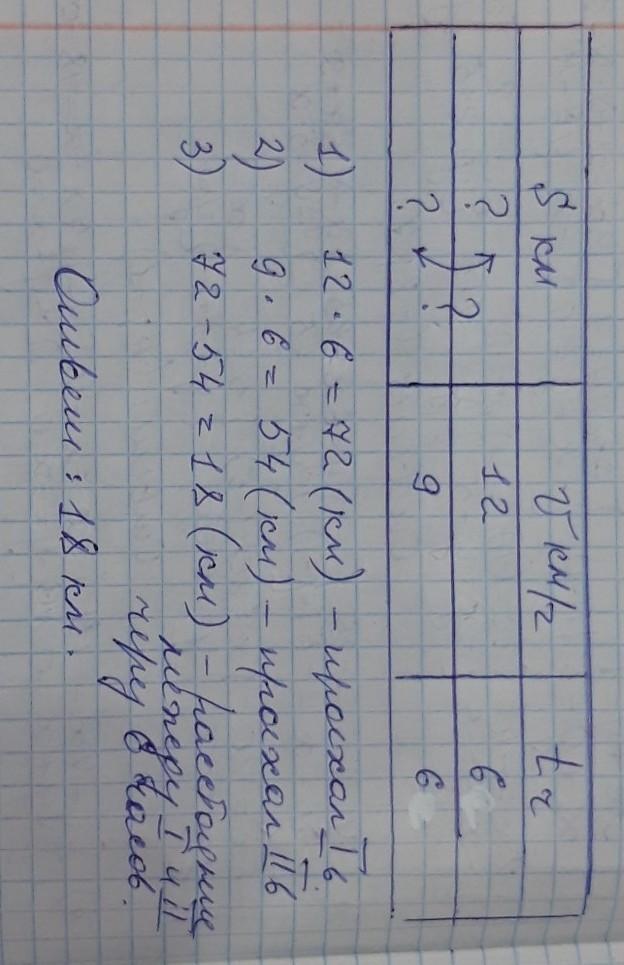 S км V км/ч t ч
? ? 12 6
? 9 6
1) 12 · 6 = 72 (км) - проехал I в
2) 9 · 6 = 54 (км) - проехал II в
3) 72 - 54 = 18 (км) - расстояние
между I и II
через 6 часов.
Ответ: 18 км.